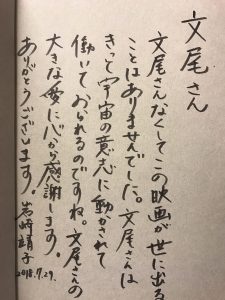 文尾さん
文尾さんなくしてこの映画が世に出る
ことはありませんでした。文尾さんは
きっと宇宙の意志に動かされて
働いておられるのですね。文尾さんの
大きな愛に心から感謝します。
ありがとうございます。岩崎靖子
2018.7.29.